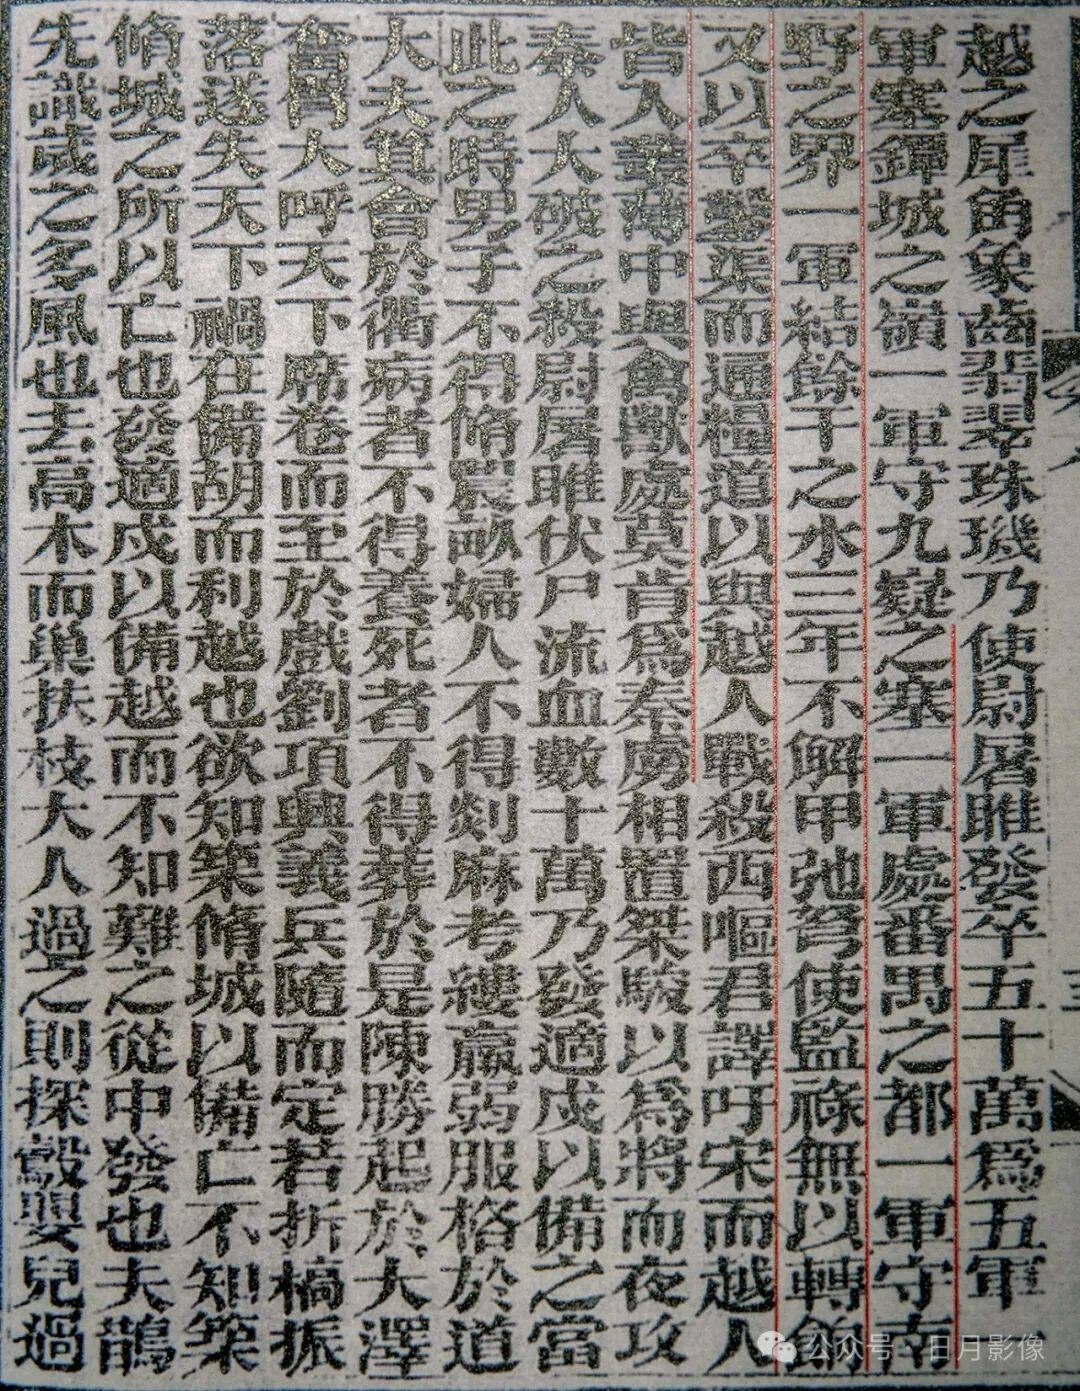 越之犀角象齒翡翠珠璣乃使尉屠睢發卒五十萬爲五軍一
軍塞鐔城之嶺一軍守九嶷之塞一軍處番禺之都一軍守南
野之界一軍結餘干之水三年不解甲弛弩使監祿無以轉餉
又以卒鑿渠而通糧道以與越人戰殺西嘔君譯吁宋而越人
皆入叢薄中與禽獸處莫肯爲秦虜相置桀駿以爲將而夜攻
秦人大破之殺尉屠睢伏尸流血數十萬乃發適戍以備之當
此之時男子不得脩農畝婦人不得剡麻考縷羸弱服格於道
大夫箕會於衢病者不得養死者不得葬於是陳勝起於大澤
奮臂大呼天下席卷而至於戲劉項興義兵隨而定若折槁振
落遂失天下禍在備胡而利越也欲知築脩城以備亡不知築
脩城之所以亡也發適戍以備越而不知難之從中發也夫鵲
先識歲之多風也去高木而巢扶枝大人過之則探鷇嬰兒過
公众号·日月影像